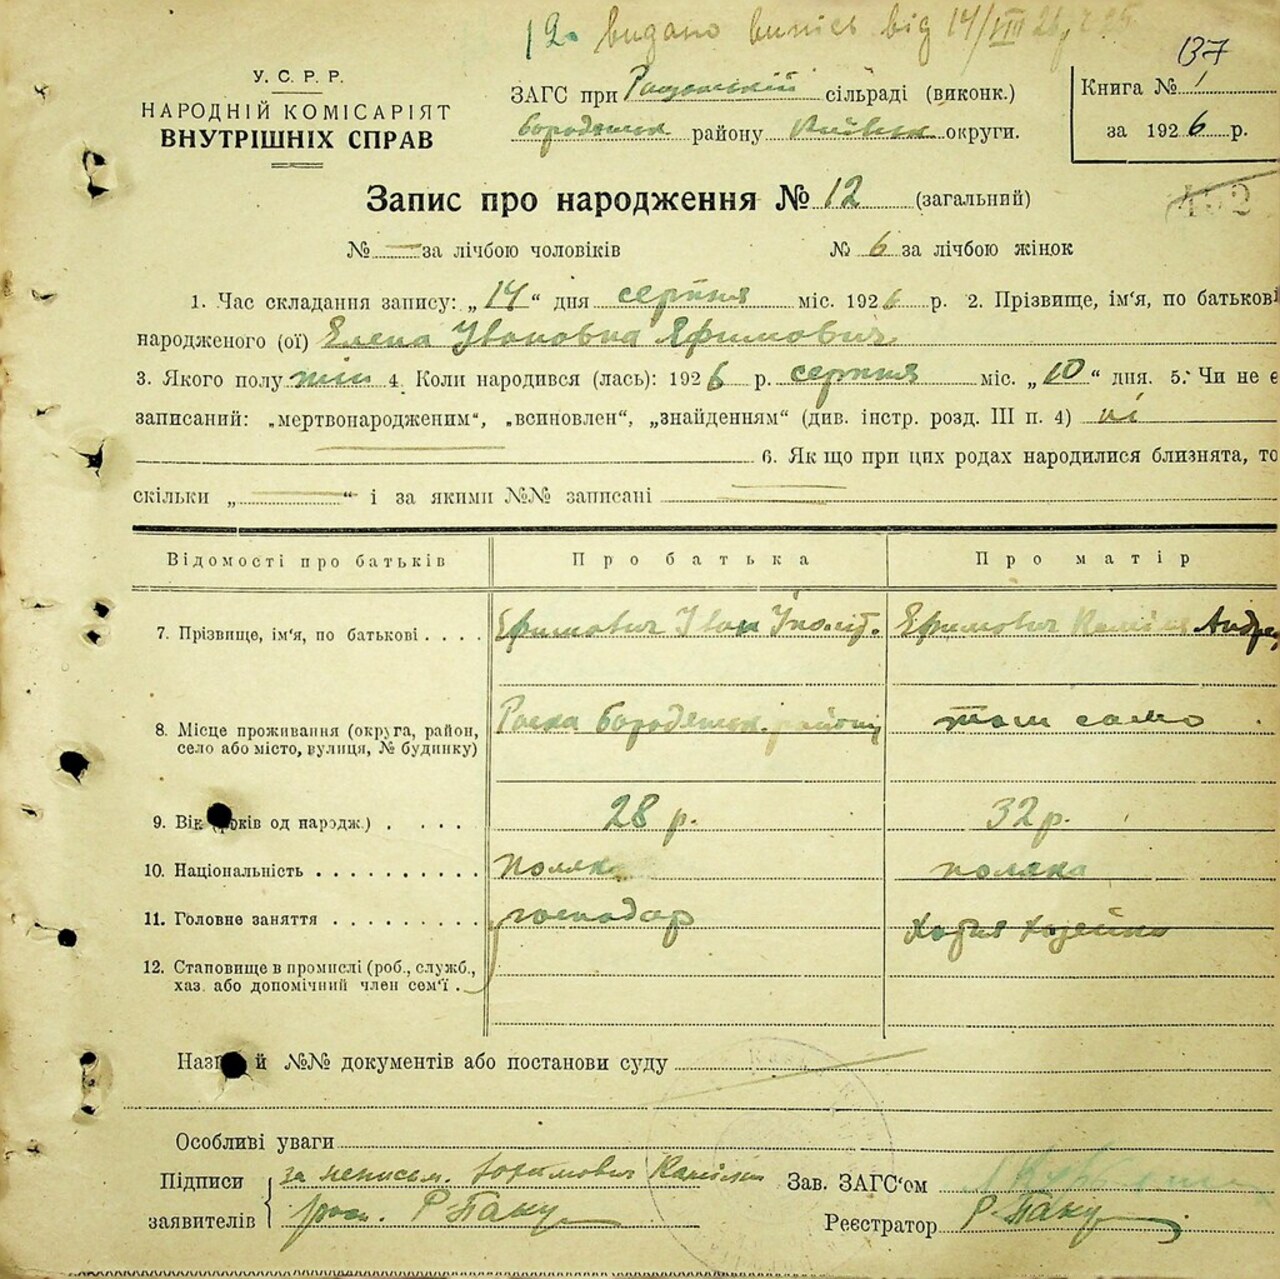 12. видано випісь від 14/VIII 26 р.
137
У. С. Р. Р.
НАРОДНІЙ КОМІСАРІЯТ
ВНУТРІШНІХ СПРАВ
ЗАГС при сільраді (виконк.)
Бородянськ. району Київськ. округи.
Книга № 1
за 1926 р.
Запис про народження № 12 (загальний)
452
№ — за лічбою чоловіків № 6 за лічбою жінок
1. Час складання запису: „14“ дня серпня міс. 1926 р. 2. Прізвище, ім‘я, по батькові
народженого (ої) Елена Ивановна Яфимович
3. Якого полу жін 4. Коли народився (лась): 1926 р. серпня міс. „10“ дня. 5. Чи не є
записаний: „мертвонародженим“, „всиновлен“, „знайденням“ (див. інстр. розд. III п. 4) ні
6. Якщо при цих родах народилися близнята, то
скільки „ — “ і за якими №№ записані
Відомості про батьків Про батька Про матір
7. Прізвище, ім‘я, по батькові . . . . Ефимович Іван Іполіт. Ефимович Андре
8. Місце проживання (округа, район,
село або місто, вулиця, № будинку) Бородянськ. району там само
9. Вік (років од народж.) . . . . . 28 р. 32 р.
10. Національність . . . . . . . . . . поляка
11. Головне заняття . . . . . . . . господар
12. Становище в промислі (роб., служб.,
хаз. або допомічний член сем‘ї .
Назва й №№ документів або постанови суду
Особливі уваги
Підписи за неписьм. Ефимович
заявителів
Зав. ЗАГС‘ом
Реєстратор